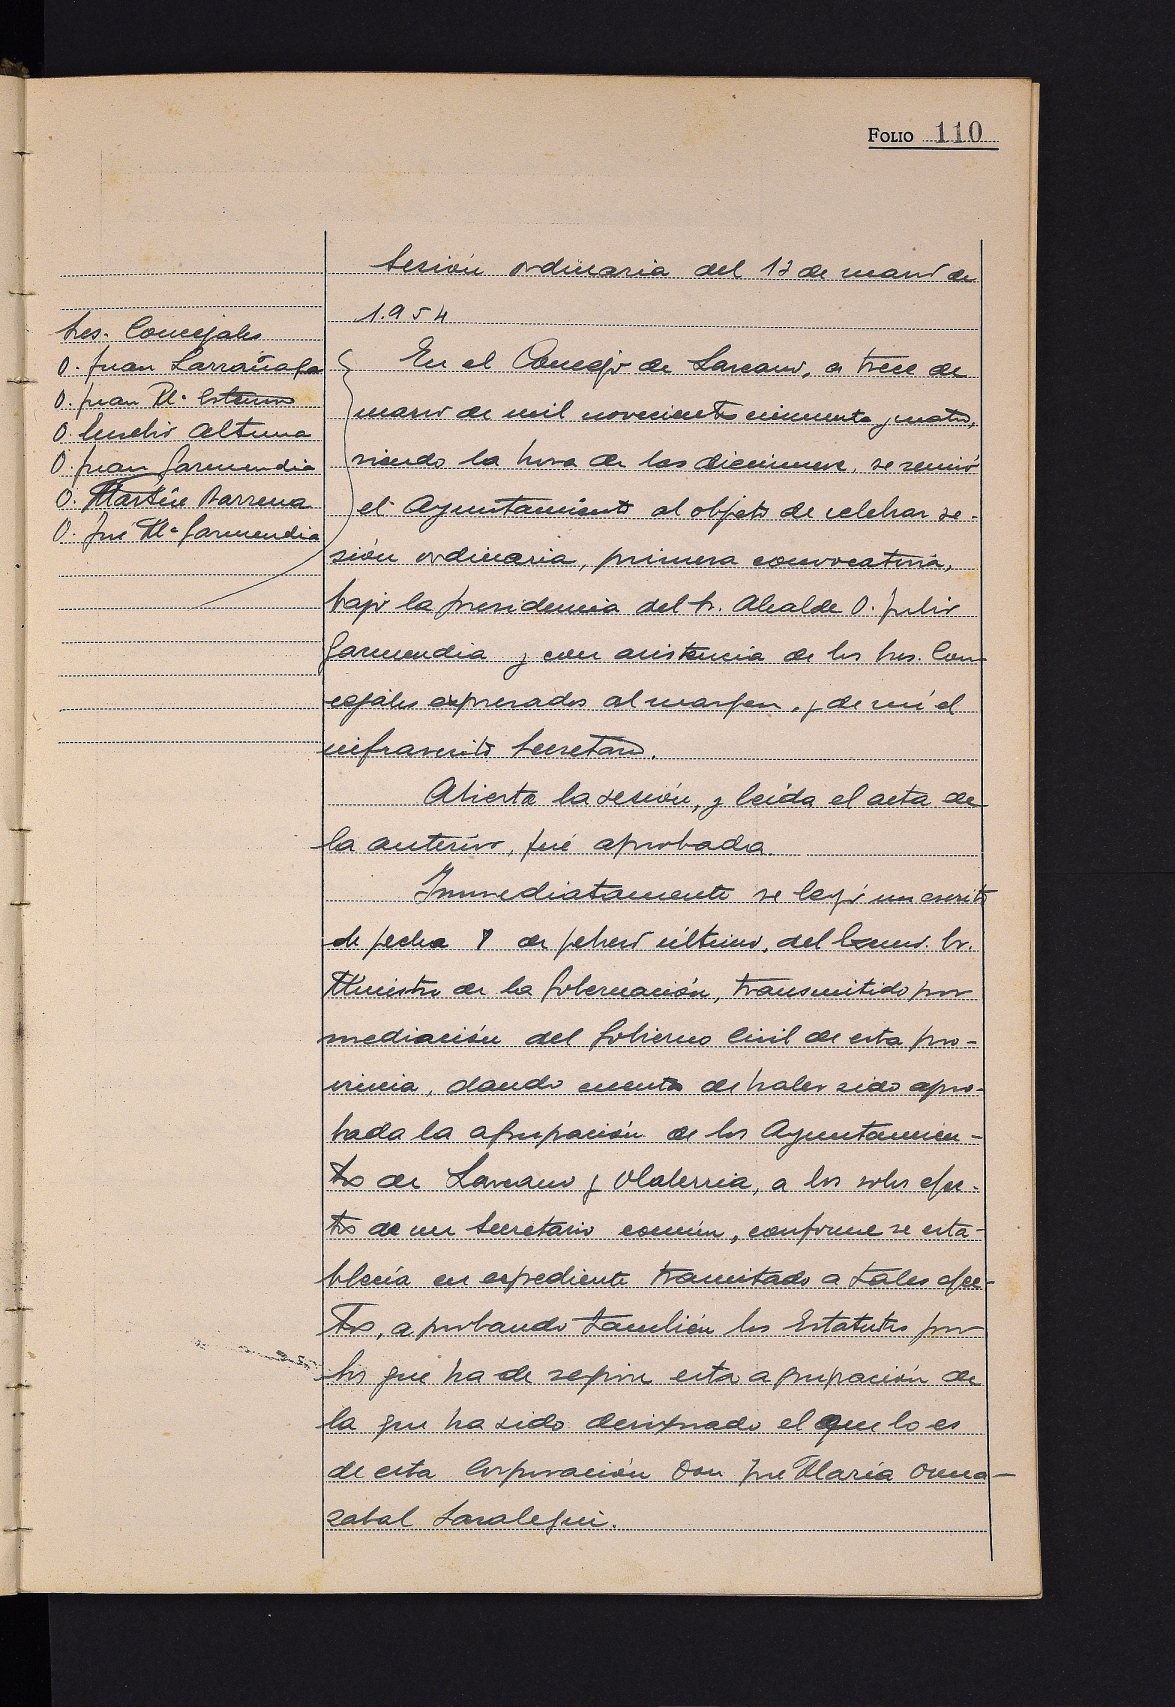 FOLIO 110
Sesión ordinaria del 13 de marzo de
1.954
Sres. Concejales
D. Juan Larrañaga
D. Juan Mª
D. Eusebio Altuna
D. Juan Garmendia
D. Martín Barrena
D. José Mª Garmendia
En el Concejo de Lazcano, a trece de
marzo de mil novecientos cincuenta y cuatro,
siendo la hora de las diecinueve, se reunió
el Ayuntamiento al objeto de celebrar se-
sión ordinaria, primera convocatoria,
bajo la presidencia del Sr. Alcalde D. Julio
Garmendia y con asistencia de los Sres. Con
cejales expresados al margen, y de mí el
infrascrito Secretario.
Abierta la sesión, y leída el acta de
la anterior, fué aprobada.
Inmediatamente se leyó un escrito
de fecha de febrero último, del Excmo. Sr.
Ministro de la Gobernación, transmitido por
mediación del Gobierno Civil de esta pro-
vincia, dando cuenta de haber sido apro-
bada la agrupación de los Ayuntamien-
tos de Lazcano y Olaberria, a los solos efec-
tos de un Secretario común, conforme se esta-
blecía en expediente tramitado a tales efec-
tos, aprobando también los Estatutos por
los que ha de regirse esta agrupación de
la que ha sido designado el que lo es
de esta Corporación Don José María Orma-
zabal Laralegui.